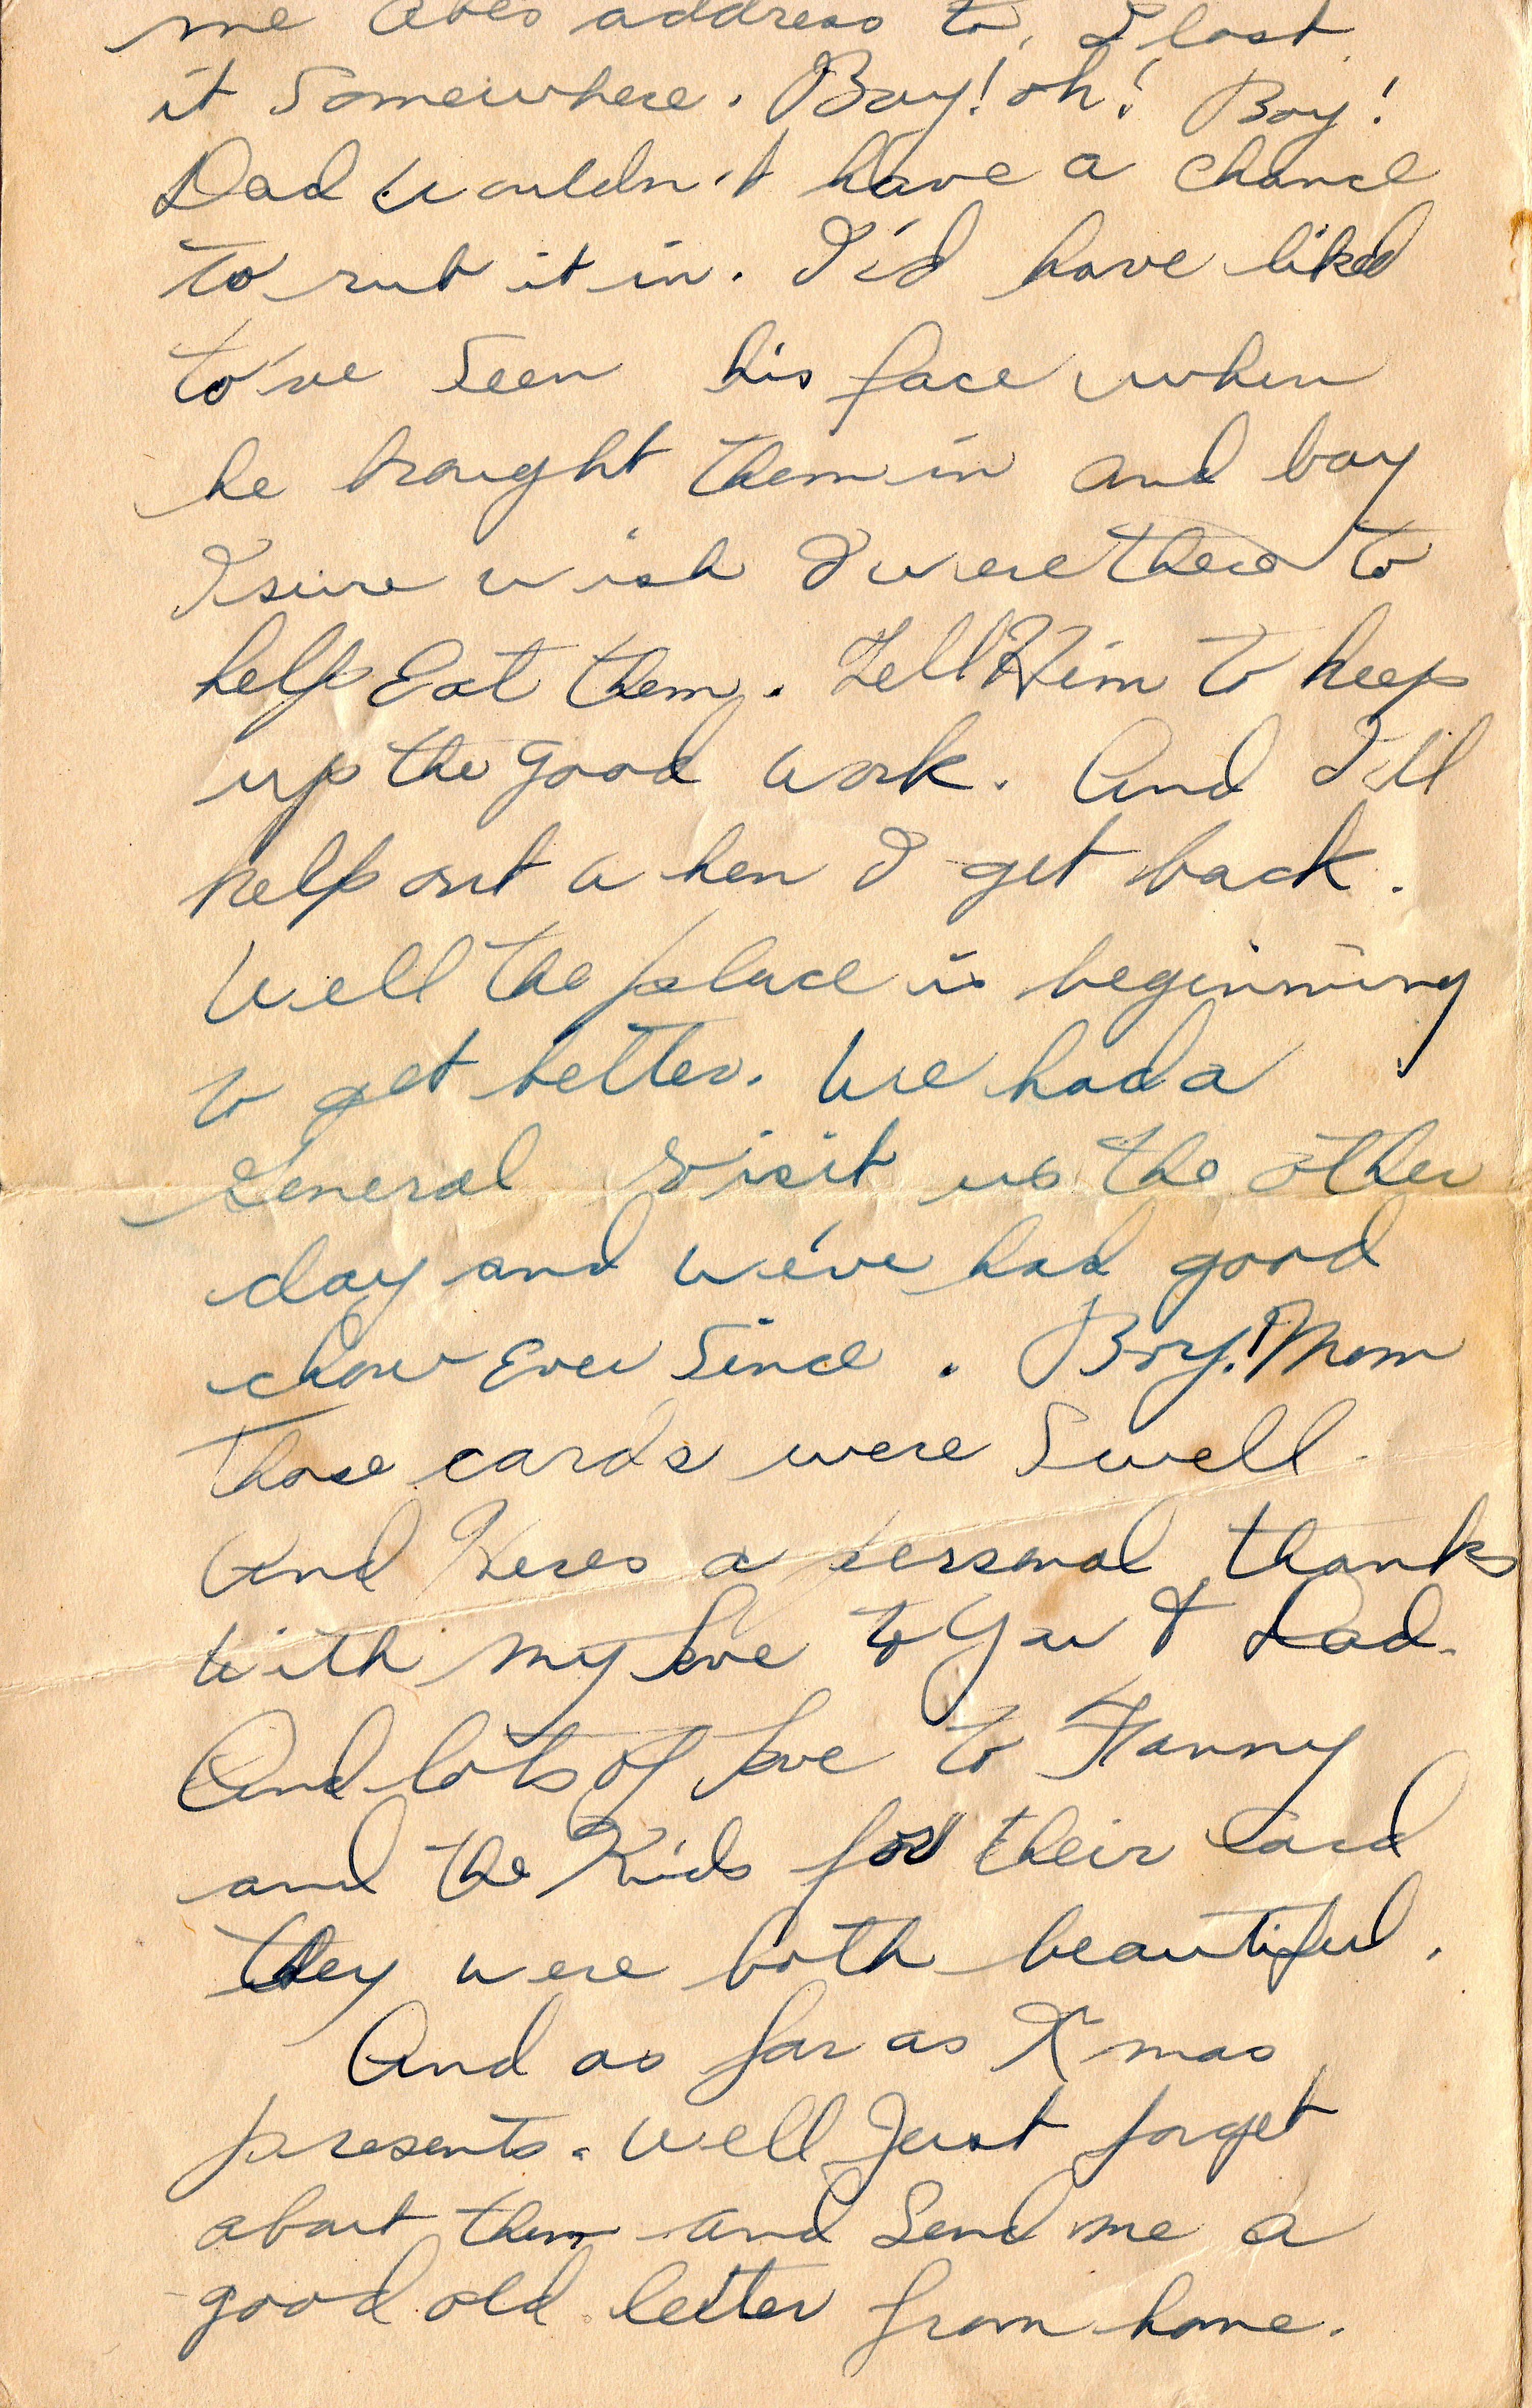 me Abes address to, I lost
it Somewhere. Boy! oh! Boy!
Dad wouldn't have a chance
to rub it in. I'd have liked
to've seen his face when
he brought them in and boy
I sure wish I were there to
help Eat them. Tell Him to keep
up the good work. And I'll
help out when I get back.
Well the place is beginning
to get better. We had a
General visit us the other
day and we've had good
chow Ever Since. Boy! Mom
those cards were Swell
And Heres a personal thanks
with my love to You & Dad.
And lots of love to Fanny
and the Kids for their card
they were both beautiful.
And as far as Xmas
presents. well Just forget
about them and Send me a
good old letter from home.